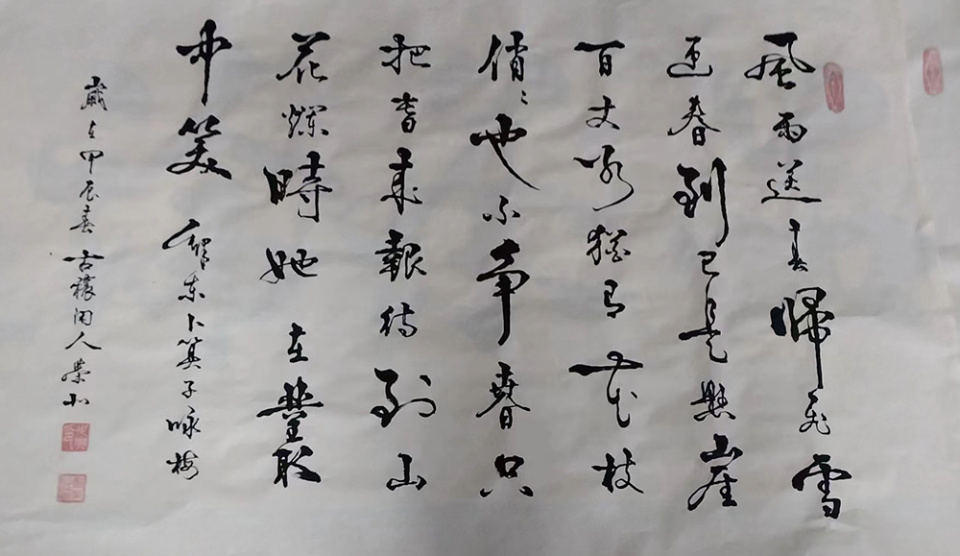 風雨送春歸飛雪
迎春到已是懸崖
百丈冰猶有花枝
俏〻也不争春只
把春来報待到山
花爛時她在叢
中笑 毛澤东卜算子咏梅
歲在甲辰春古穰闲人